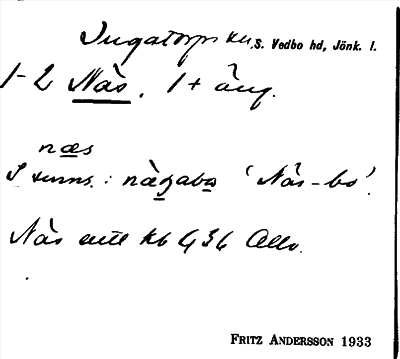 Ingatorps sn, S. Vedbo hd, Jönk. l.
1-2 Näs. 1 + äng.
næs
S sums. : nægabo 'Näs-bo'.
Näs enl kb G 36 Allm.
FRITZ ANDERSSON 1933